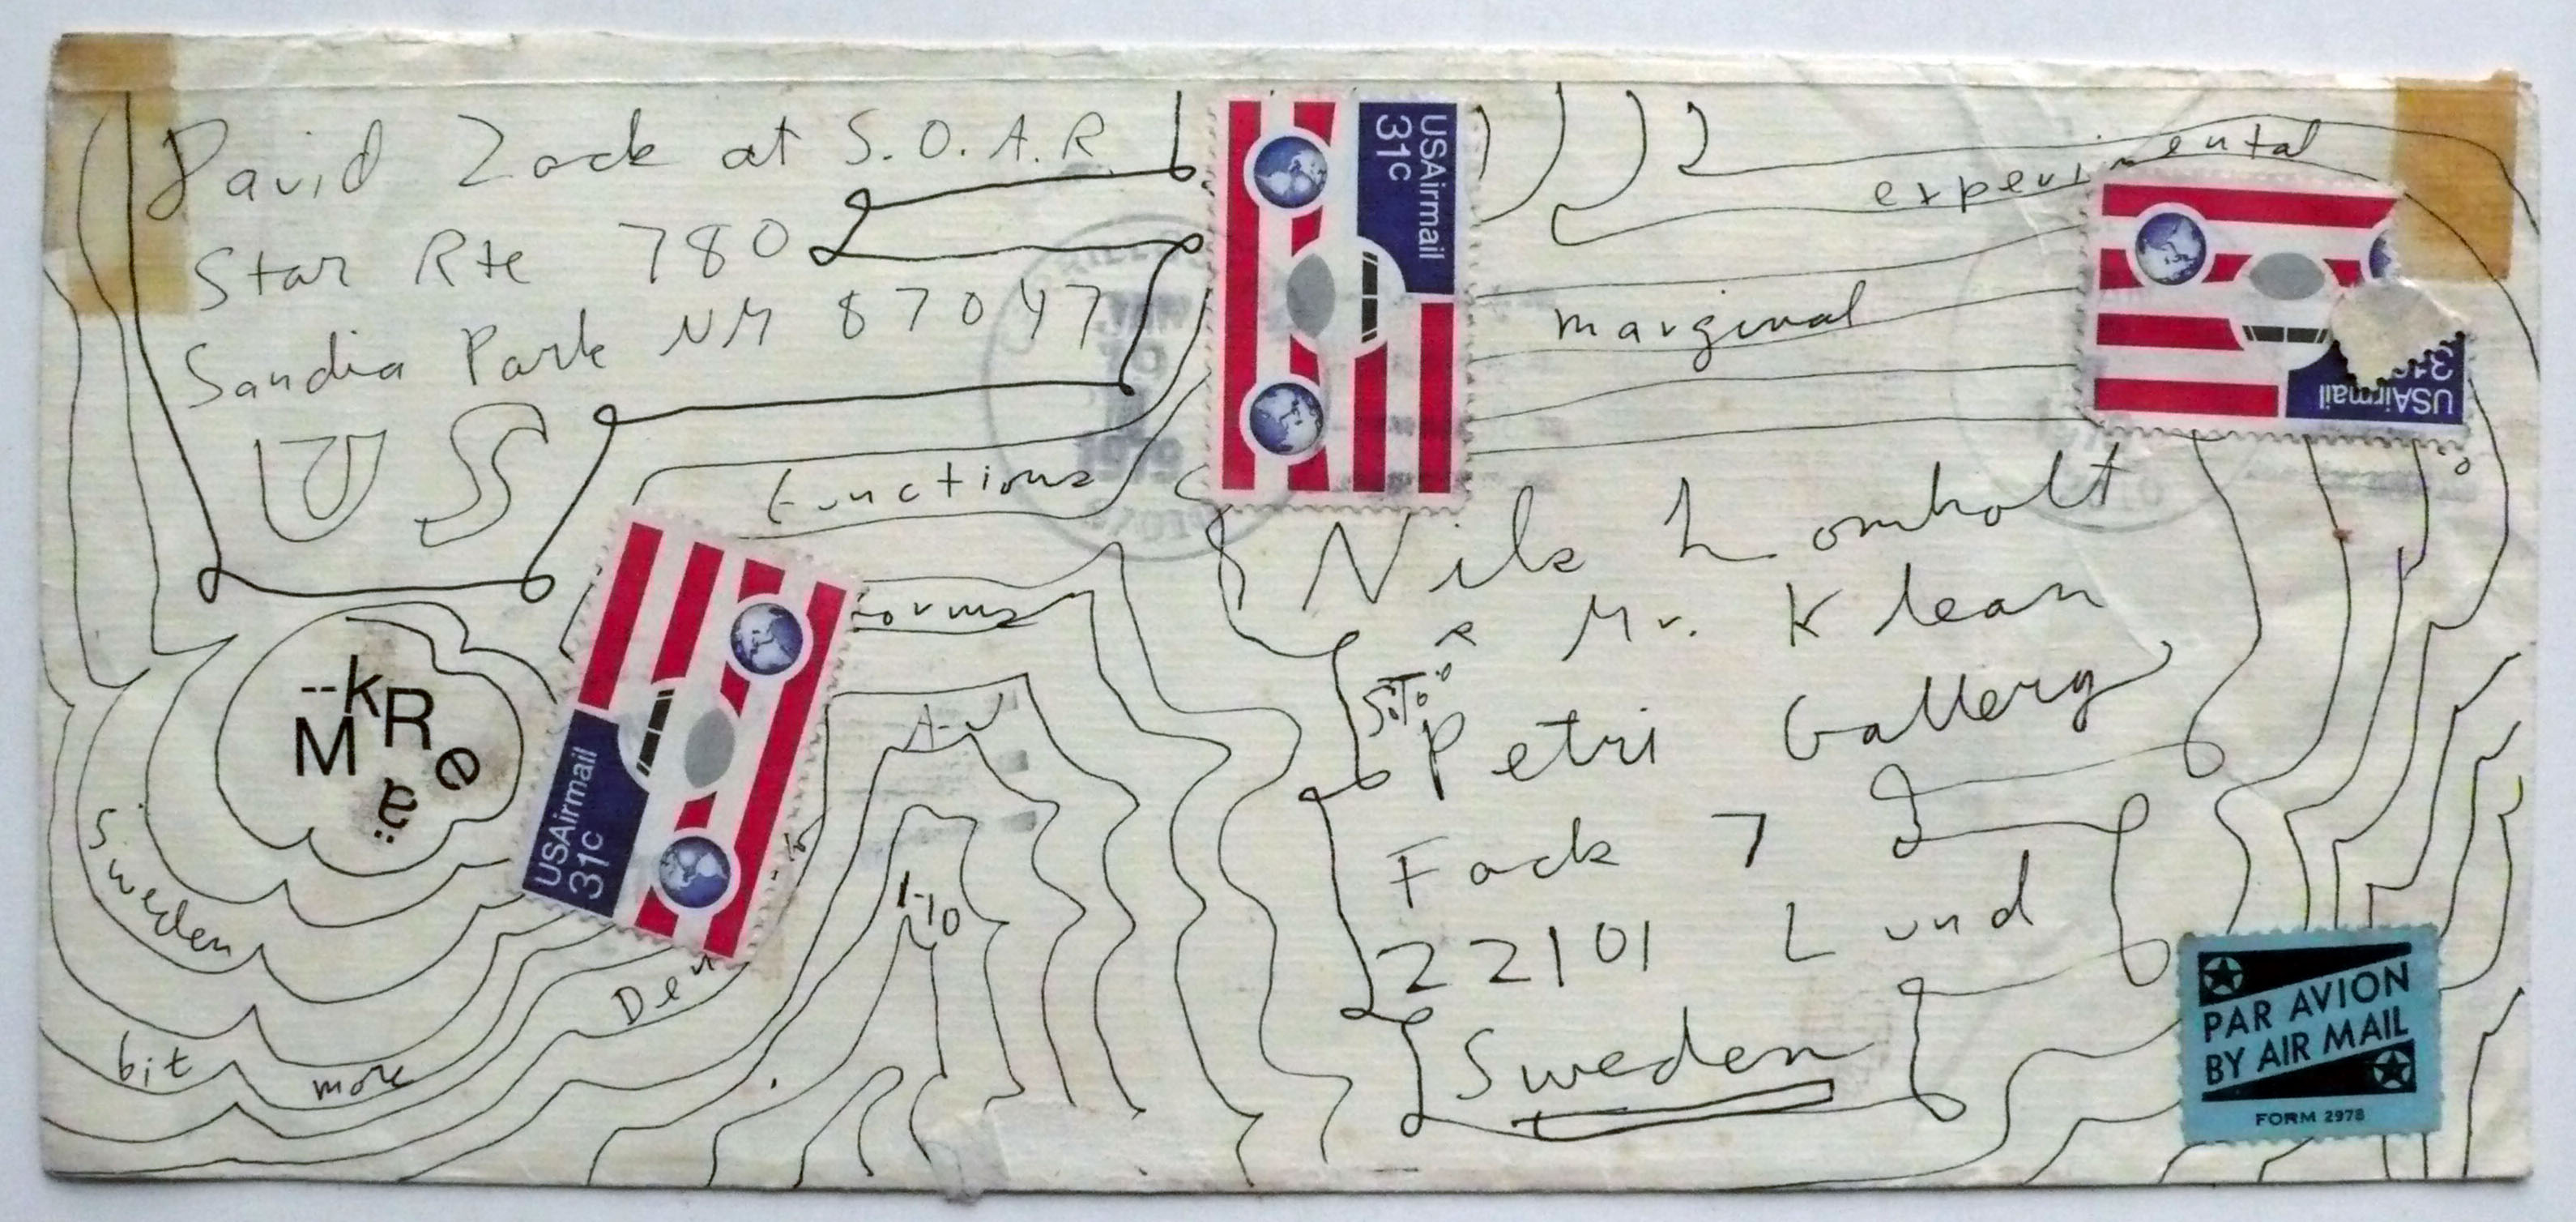 David Zack at S.O.A.R.
Star Rte 780
Sandia Park NM 87047
US
USAirmail
31c
experimental
marginal
USAirmail
functions
forms
Nils Lomholt
Mr. Klean
Petri Gallery
Fack 7
22101 Lund
Sweden
--kR
M e
ä
USAirmail
31c
A-J
1-10
Sweden
bit more
Den
PAR AVION
BY AIR MAIL
FORM 2978